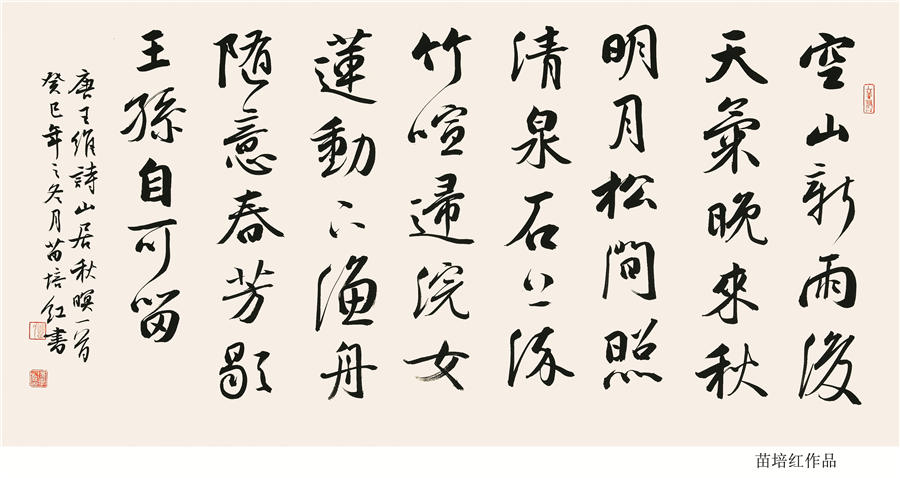 空山新雨後
天氣晚来秋
明月松間照
清泉石上流
竹喧歸浣女
蓮動下漁舟
随意春芳歇
王孫自可留
唐王維詩山居秋暝一首
癸巳年之冬月苗培红书
苗培红作品